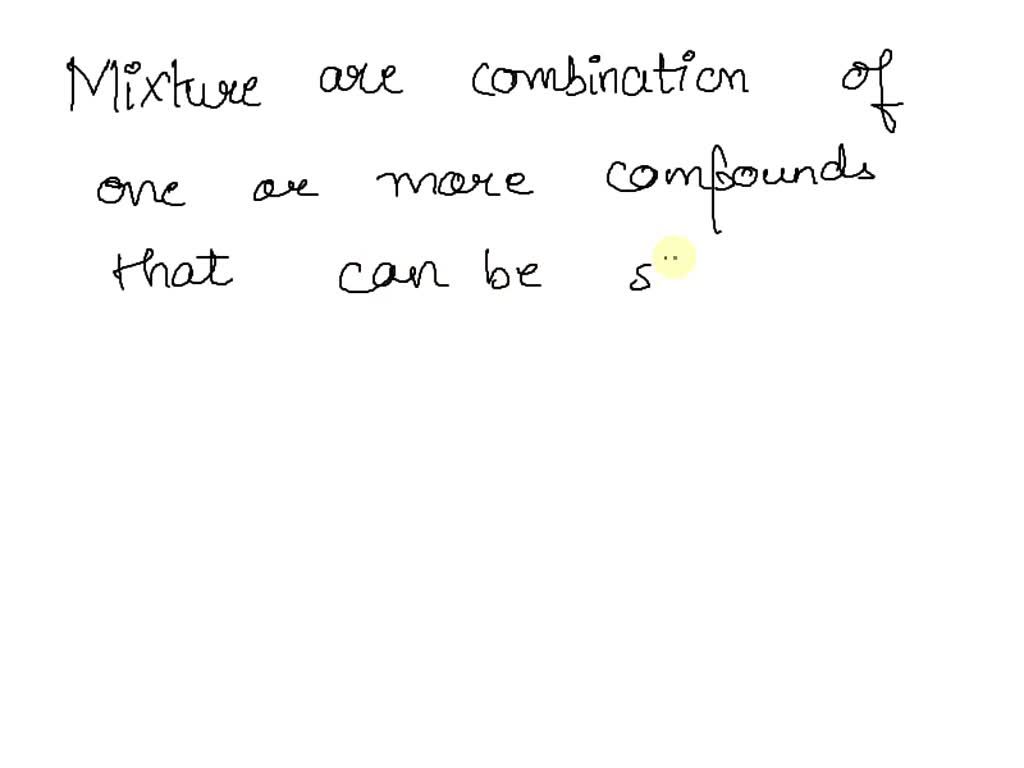 Mixture are combination of
one or more compounds
that can be s